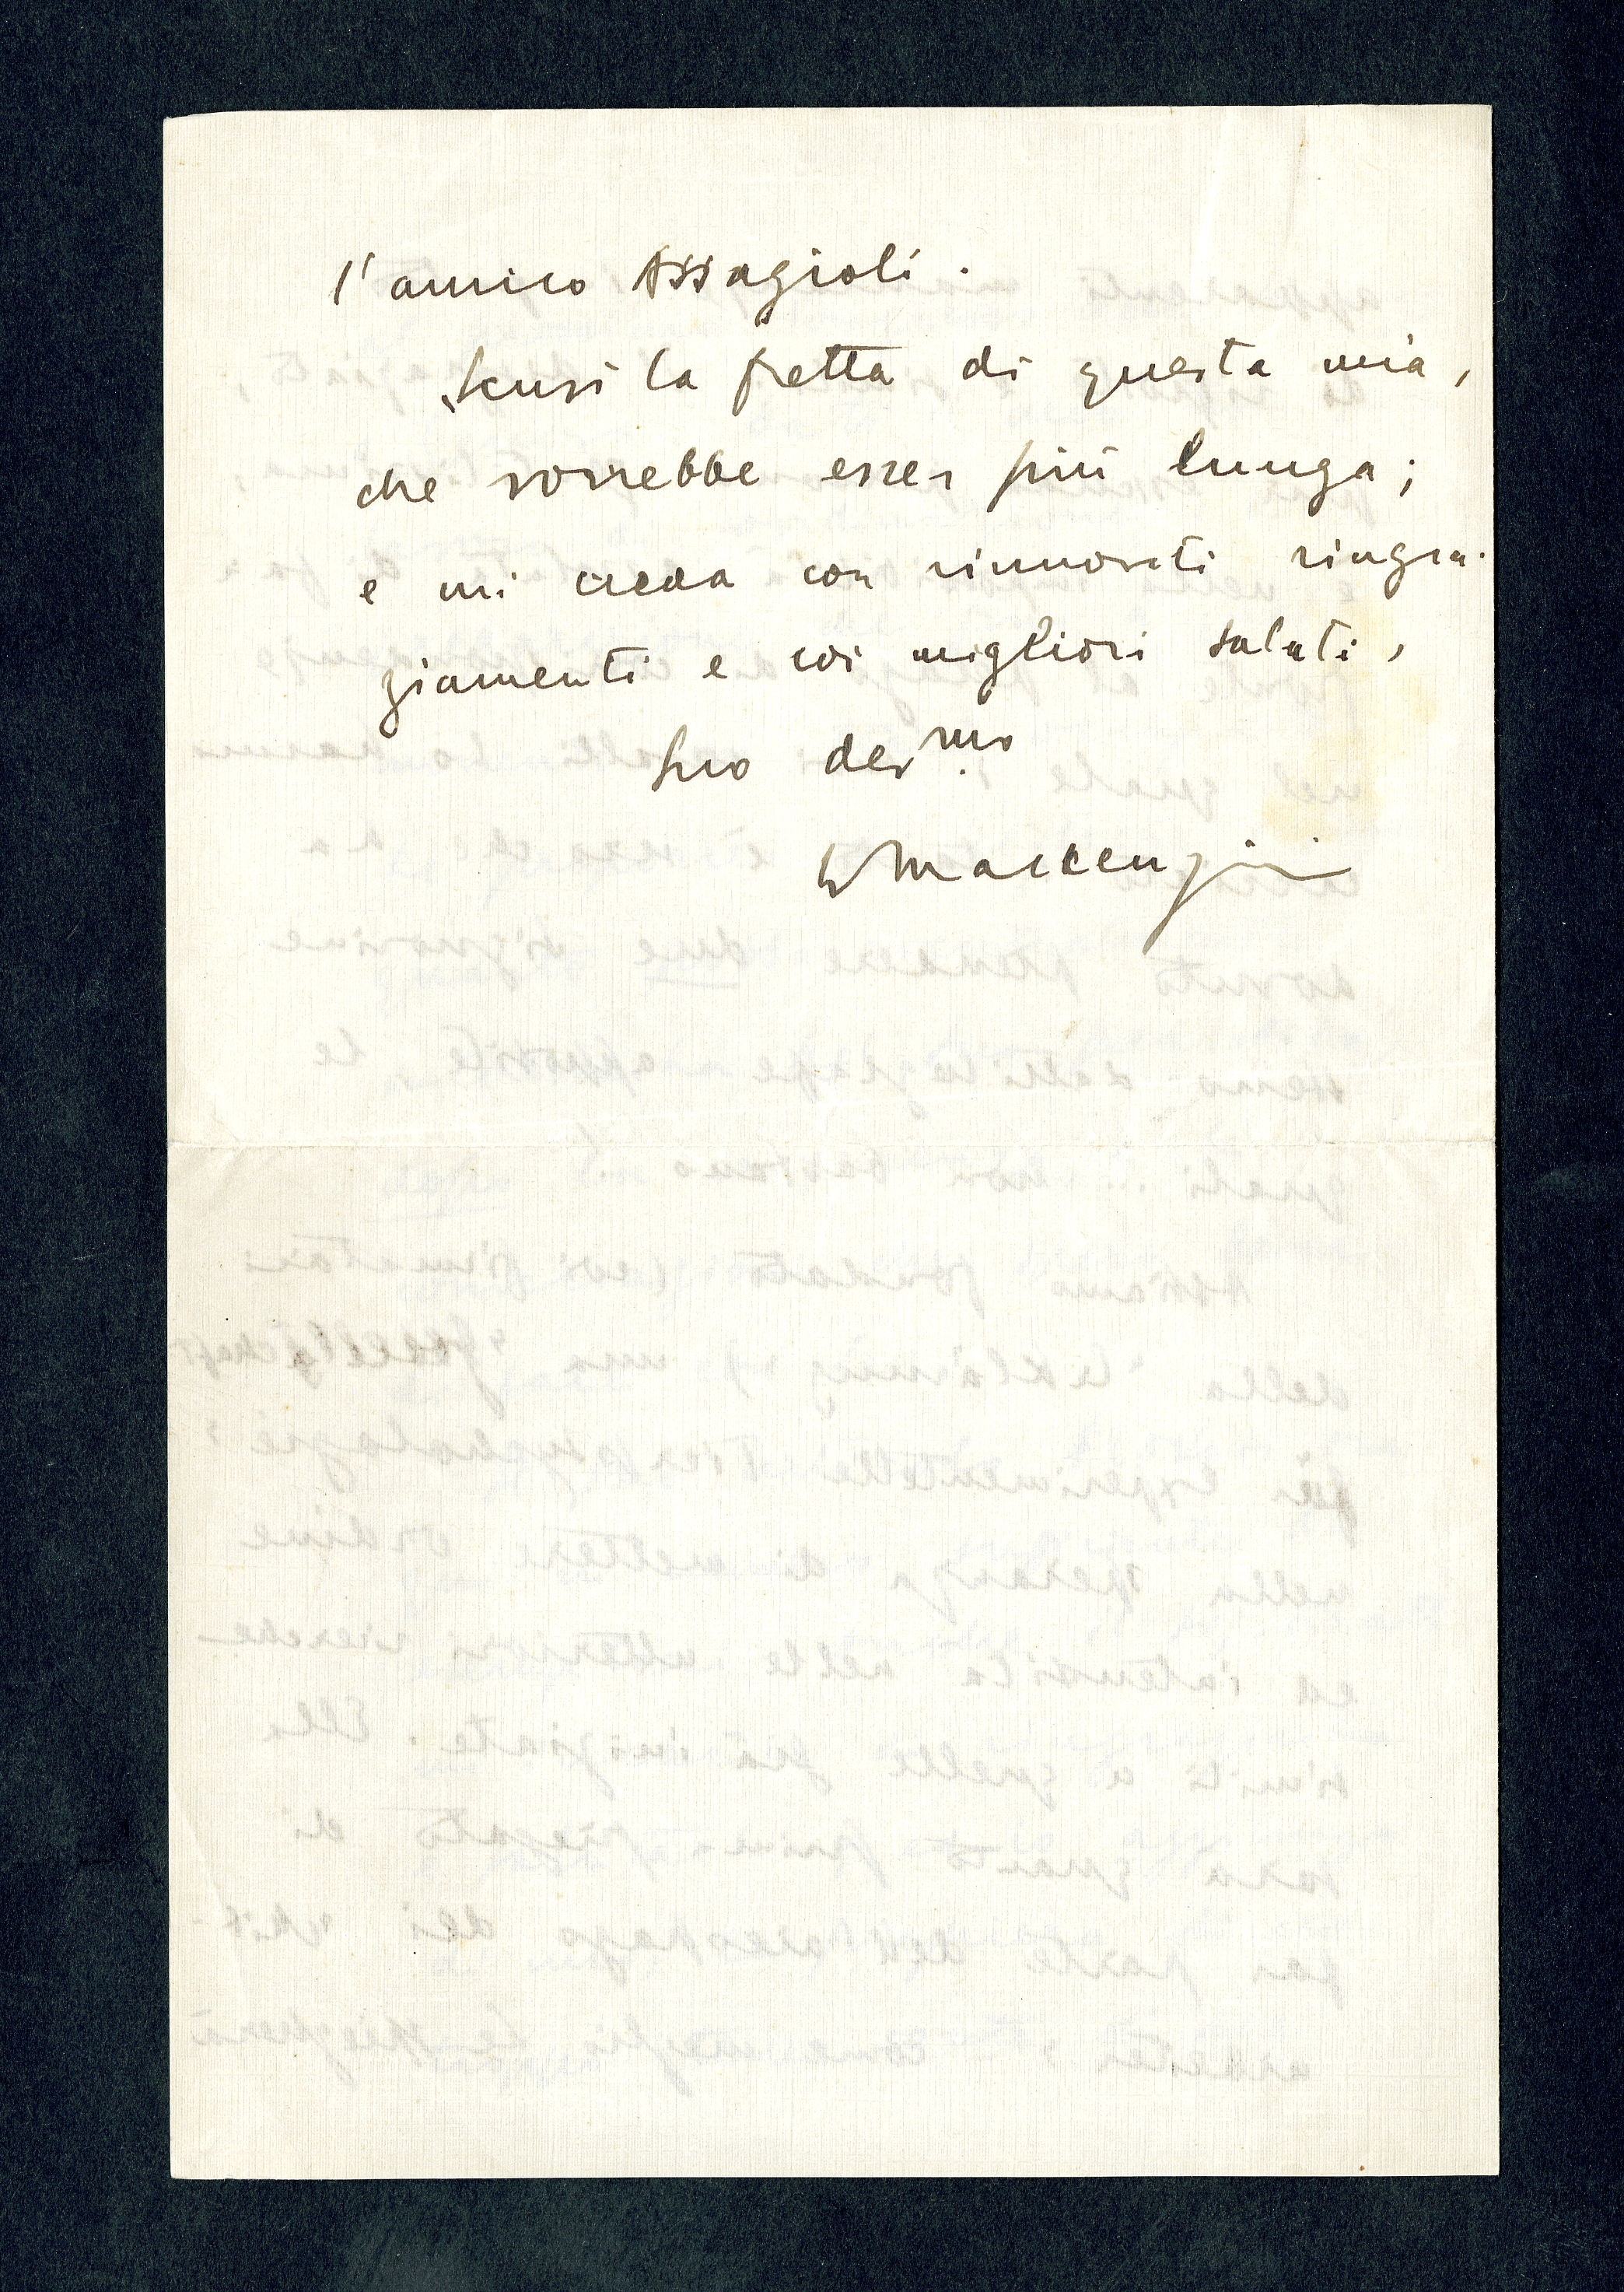 l'amico Assagioli.
Scusi la fretta di questa mia,
che vorrebbe esser più lunga;
e mi creda con rinnovati ringra-
ziamenti e coi migliori saluti,
Suo dev.mo
WMackenzie